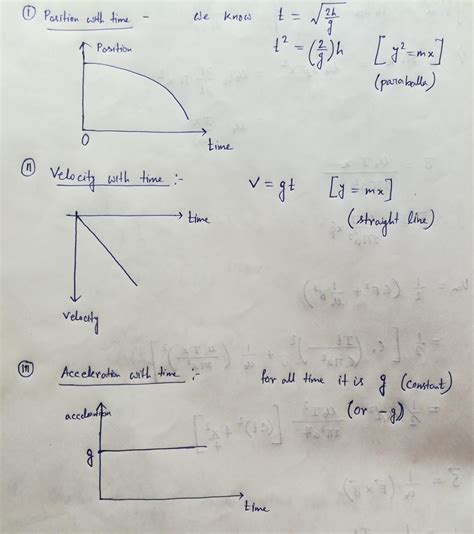 (I) Position with time :- We know t = √(2h/g)
t² = (2/g)h [y² = mx]
(parabolla)
Position
O
time
(II) Velocity with time :- V = gt [y = mx]
(straight line)
time
Velocity
(III) Acceleration with time :- for all time it is g (constant)
(or -g)
acceleration
g
time